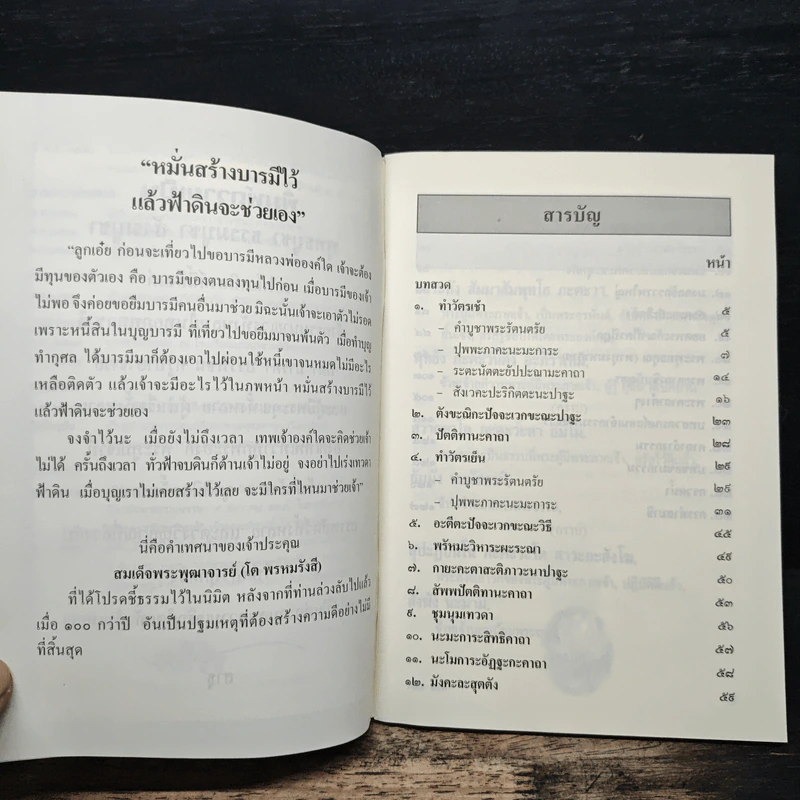 “หมั่นสร้างบารมีไว้
แล้วฟ้าดินจะช่วยเอง”
“ลูกเอ๋ย ก่อนจะเที่ยวไปขอบารมีหลวงพ่อองค์ใด เจ้าจะต้อง
มีทุนของตัวเอง คือ บารมีของตนลงทุนไปก่อน เมื่อบารมีของเจ้า
ไม่พอ จึงค่อยขอยืมบารมีคนอื่นมาช่วย มิฉะนั้นเจ้าจะเอาตัวไม่รอด
เพราะหนี้สินในบุญบารมี ที่เที่ยวไปขอยืมมาจนพ้นตัว เมื่อทำบุญ
ทำกุศล ได้บารมีมาก็ต้องเอาไปผ่อนใช้หนี้เขาจนหมดไม่มีอะไร
เหลือติดตัว แล้วเจ้าจะมีอะไรไว้ในภพหน้า หมั่นสร้างบารมีไว้
แล้วฟ้าดินจะช่วยเอง
จงจำไว้นะ เมื่อยังไม่ถึงเวลา เทพเจ้าองค์ใดจะคิดช่วยเจ้า
ไม่ได้ ครั้นถึงเวลา ทั่วฟ้าจบดินก็ต้านเจ้าไม่อยู่ จงอย่าไปเร่งเทวดา
ฟ้าดิน เมื่อบุญเราไม่เคยสร้างไว้เลย จะมีใครที่ไหนมาช่วยเจ้า”
นี่คือคำเทศนาของเจ้าประคุณ
สมเด็จพระพุฒาจารย์ (โต พรหมรังสี)
ที่ได้โปรดชี้ธรรมไว้ในนิมิต หลังจากที่ท่านล่วงลับไปแล้ว
เมื่อ ๑๐๐ กว่าปี อันเป็นปฐมเหตุที่ต้องสร้างความดีอย่างไม่มี
ที่สิ้นสุด
สารบัญ
หน้า
บทสวด
๑. ทำวัตรเช้า ๕
- คำบูชาพระรัตนตรัย ๕
- ปุพพะภาคะนะมะการะ ๗
- ระตะนัตตะยัปปะณามะคาถา ๑๔
- สังเวคะปะริกิตตะนะปาฐะ ๑๖
๒. ตังขะณิกะปัจจะเวกขะณะปาฐะ ๒๓
๓. ปัตติทานะคาถา ๒๘
๔. ทำวัตรเย็น ๒๙
- คำบูชาพระรัตนตรัย ๒๙
- ปุพพะภาคะนะมะการะ ๓๑
๕. อะตีตะปัจจะเวกขะณะวิธี ๔๕
๖. พรัหมะวิหาระผะระณา ๔๙
๗. กายะคะตาสะติภาวะนาปาฐะ ๕๐
๘. สัพพปัตติทานะคาถา ๕๓
๙. ชุมนุมเทวดา ๕๖
๑๐. นะมะการะสิทธิคาถา ๕๗
๑๑. นะโมการะอัฏฐะกะคาถา ๕๘
๑๒. มังคะละสุตตัง ๕๙